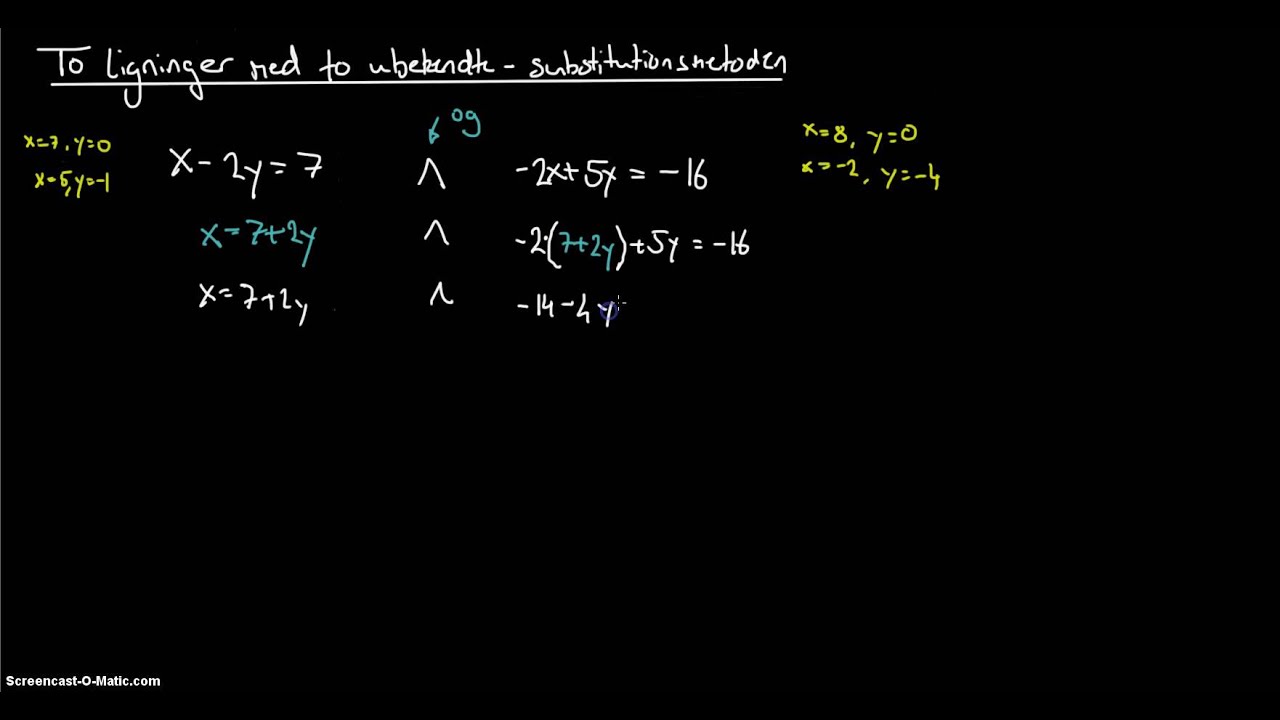 To ligninger med to ubekendte - substitutionsmetoden
og
x=7, y=0
x=5, y=-1
x - 2y = 7 ∧ -2x + 5y = -16
x=8, y=0
x=-2, y=-4
x = 7+2y ∧ -2·(7+2y)+5y = -16
x = 7+2y ∧ -14-4y
Screencast-O-Matic.com